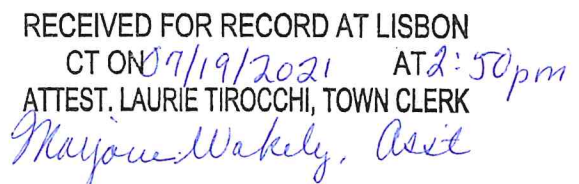 RECEIVED FOR RECORD AT LISBON
CT ON 07/19/2021 AT 2:50pm
ATTEST. LAURIE TIROCCHI, TOWN CLERK
Marjorie Wakely, Asst